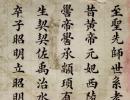 至聖先師世系考
昔黃帝元妃西陵
帝嚳
生契契佐禹治水
卒子昭明立昭明